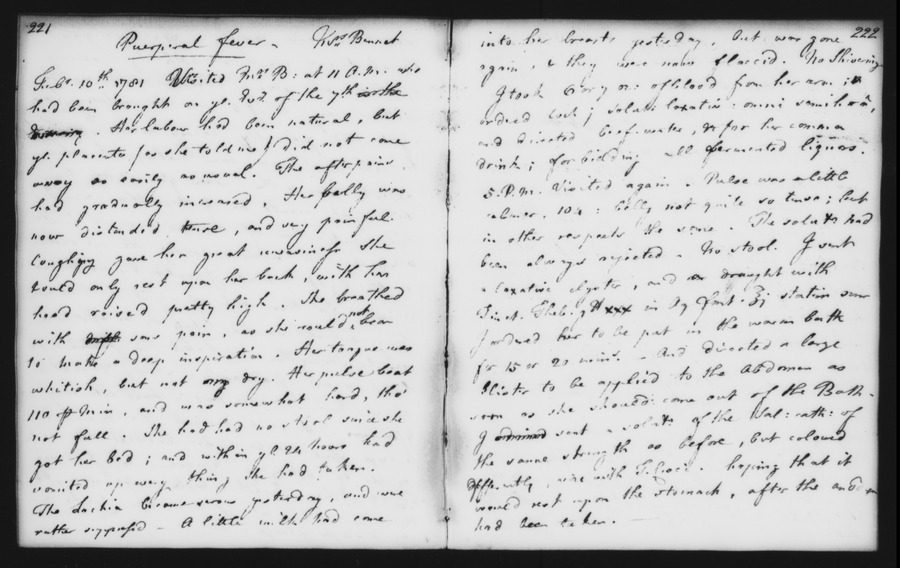 221
Puerperal fever - Mrs. Bennet
Feb. 10th 1781 Visited Mrs B: at 11 A.M. who
had been brought on ye. of the 7th
. Her labour had been natural, but
ye. placenta (as she told me) did not come
away as easily as usual. The afterpains
had gradually increased. Her belly was
now distended, and very painful.
Coughing gave her great uneasiness. She
could only rest upon her back, with her
head raised pretty high. She breathed
with some pain, as she could not bear
to make a deep inspiration. Her tongue was
whitish, but not dry. Her pulse beat
110 p Min, and was somewhat hard, tho'
not full. She had had no stool since she
got her bed; and within ye. 24 hours had
vomited up every thing she had taken.
The Lochia became serous yesterday, and were
rather suppressed - A little milk had come
222
into her breasts yesterday, but was gone
again, & they were now flaccid. No Shivering
I took of blood from her arm;
ordered omni semihora,
and directed Beef-water, for her common
drink; forbidding all fermented liquors.
5. P.M. Visited again. Pulse was a little
calmer, 104: belly not quite so tense; but
in other respects the same. The had
been always rejected - No stool. I sent
a laxative clyster, and a draught with
Tinct. Theb. gtt xxx in Aq font.
I ordered her to be put in the warm bath
for 15 or 20 min. - And directed a large
Blister to be applied to the Abdomen as
soon as she should come out of the Bath -
I sent a of the Sal: cath: of
the same strength as before, but coloured
differently, hoping that it
would rest upon the stomach, after the
had been taken.